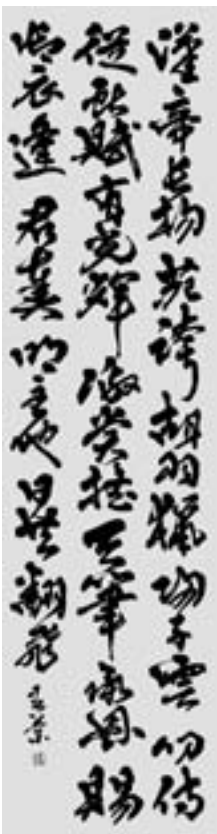 漢帝長楊苑誇胡羽獵歸子雲叨侍
從獻賦有光輝激賞搖天筆承恩賜
御衣逢君奏明主他日共翻飛